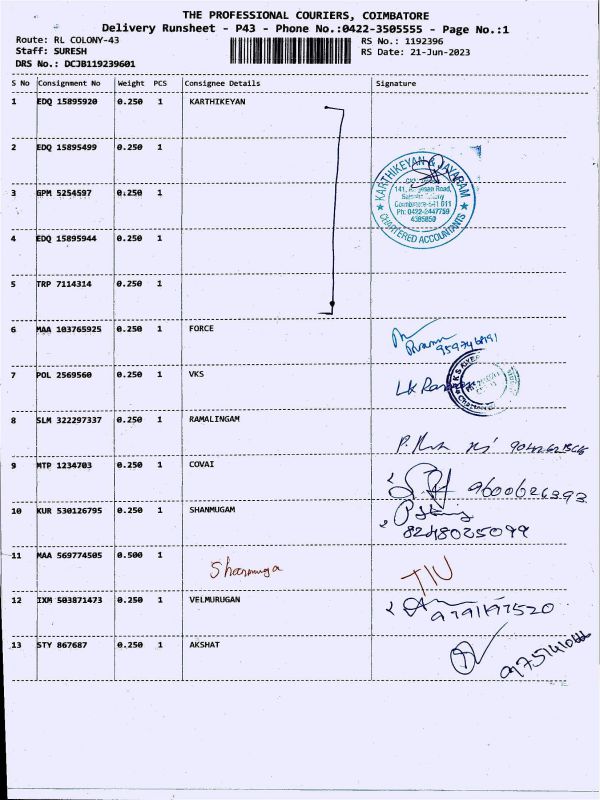 THE PROFESSIONAL COURIERS, COIMBATORE
Delivery Runsheet - P43 - Phone No.:0422-3505555 - Page No.:1
Route: RL COLONY-43
RS No.: 1192396
Staff: SURESH
RS Date: 21-Jun-2023
DRS No.: DCJB119239601
S No Consignment No Weight PCS Consignee Details Signature
1 EDQ 15895920 0.250 1 KARTHIKEYAN
2 EDQ 15895499 0.250 1
KARTHIKEYAN & JAYARAM
3 GPM 5254597 0.250 1
Coimbatore-641 011
Ph: 0422-2447759
4385850
CHARTERED ACCOUNTANTS
4 EDQ 15895944 0.250 1
5 TRP 7114314 0.250 1
6 MAA 103765925 0.250 1 FORCE
7 POL 2569560 0.250 1 VKS
8 SLM 322297337 0.250 1 RAMALINGAM
9 MTP 1234703 0.250 1 COVAI
9600626393
10 KUR 530126795 0.250 1 SHANMUGAM
8248025099
11 MAA 569774505 0.500 1
Shanmuga
12 IXM 503871473 0.250 1 VELMURUGAN
13 STY 867687 0.250 1 AKSHAT